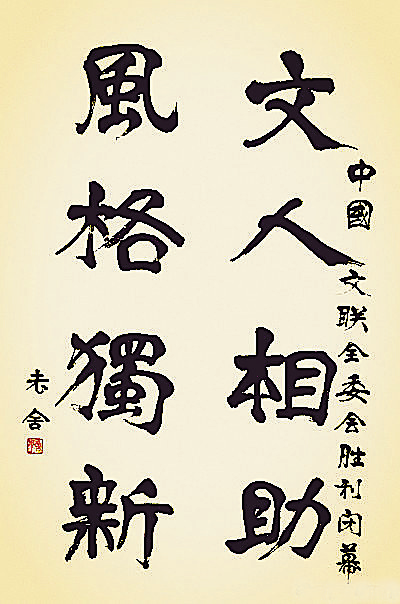 中國 文联全委会胜利闭幕
文人相助
風格獨新
老舍